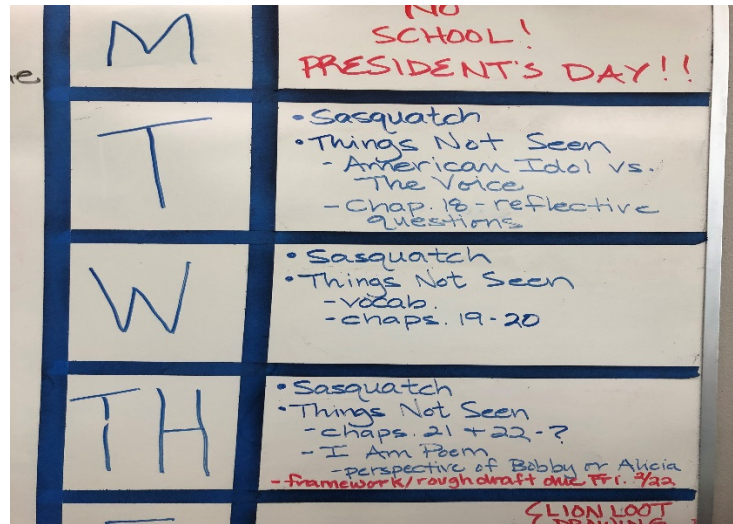 M
NO
SCHOOL!
PRESIDENT'S DAY!!
T
• Sasquatch
• Things Not Seen
- American Idol vs.
The Voice
- Chap. 18 - reflective
questions
W
• Sasquatch
• Things Not Seen
- vocab.
- chaps. 19-20
TH
• Sasquatch
• Things Not Seen
- chaps. 21 + 22-?
- I Am Poem
- perspective of Bobby or Alicia
- framework/rough draft due Fri. 2/22
LION LOOT
DRAWING